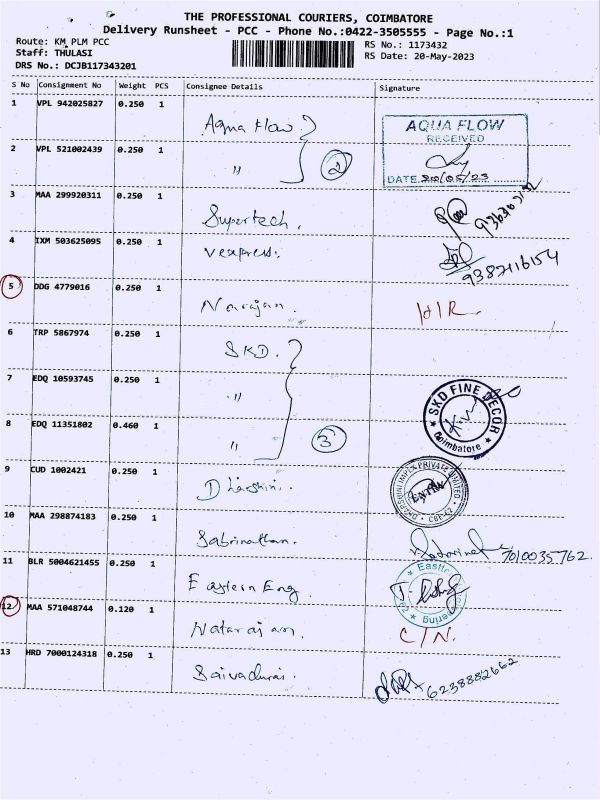 THE PROFESSIONAL COURIERS, COIMBATORE
Delivery Runsheet - PCC - Phone No.:0422-3505555 - Page No.:1
Route: KM PLM PCC
Staff: THULASI
DRS No.: DCJB117343201
RS No.: 1173432
RS Date: 20-May-2023
S No Consignment No Weight PCS Consignee Details Signature
1 VPL 942025827 0.250 1 Aqua Flow
AQUA FLOW
RECEIVED
DATE 20/05/23
2 VPL 521002439 0.250 1 " 2
3 MAA 299920311 0.250 1 Supertech.
4 IXM 503625095 0.250 1 Vexpress. 9382116154
5 DDG 4779016 0.250 1 Narajan. H/R.
6 TRP 5867974 0.250 1 SKD.
7 EDQ 10593745 0.250 1 "
8 EDQ 11351802 0.460 1 " 3
SKD FINE DECOR
Coimbatore
9 CUD 1002421 0.250 1 Dharshini.
DHARSHINI IMPEX PRIVATE LIMITED
10 MAA 298874183 0.250 1 Sabrinathan. 7010035762
11 BLR 5004621455 0.250 1 Eastern Eng
12 MAA 571048744 0.120 1 Natarajan C/N.
13 HRD 7000124318 0.250 1 Saivadurai. 6238882662